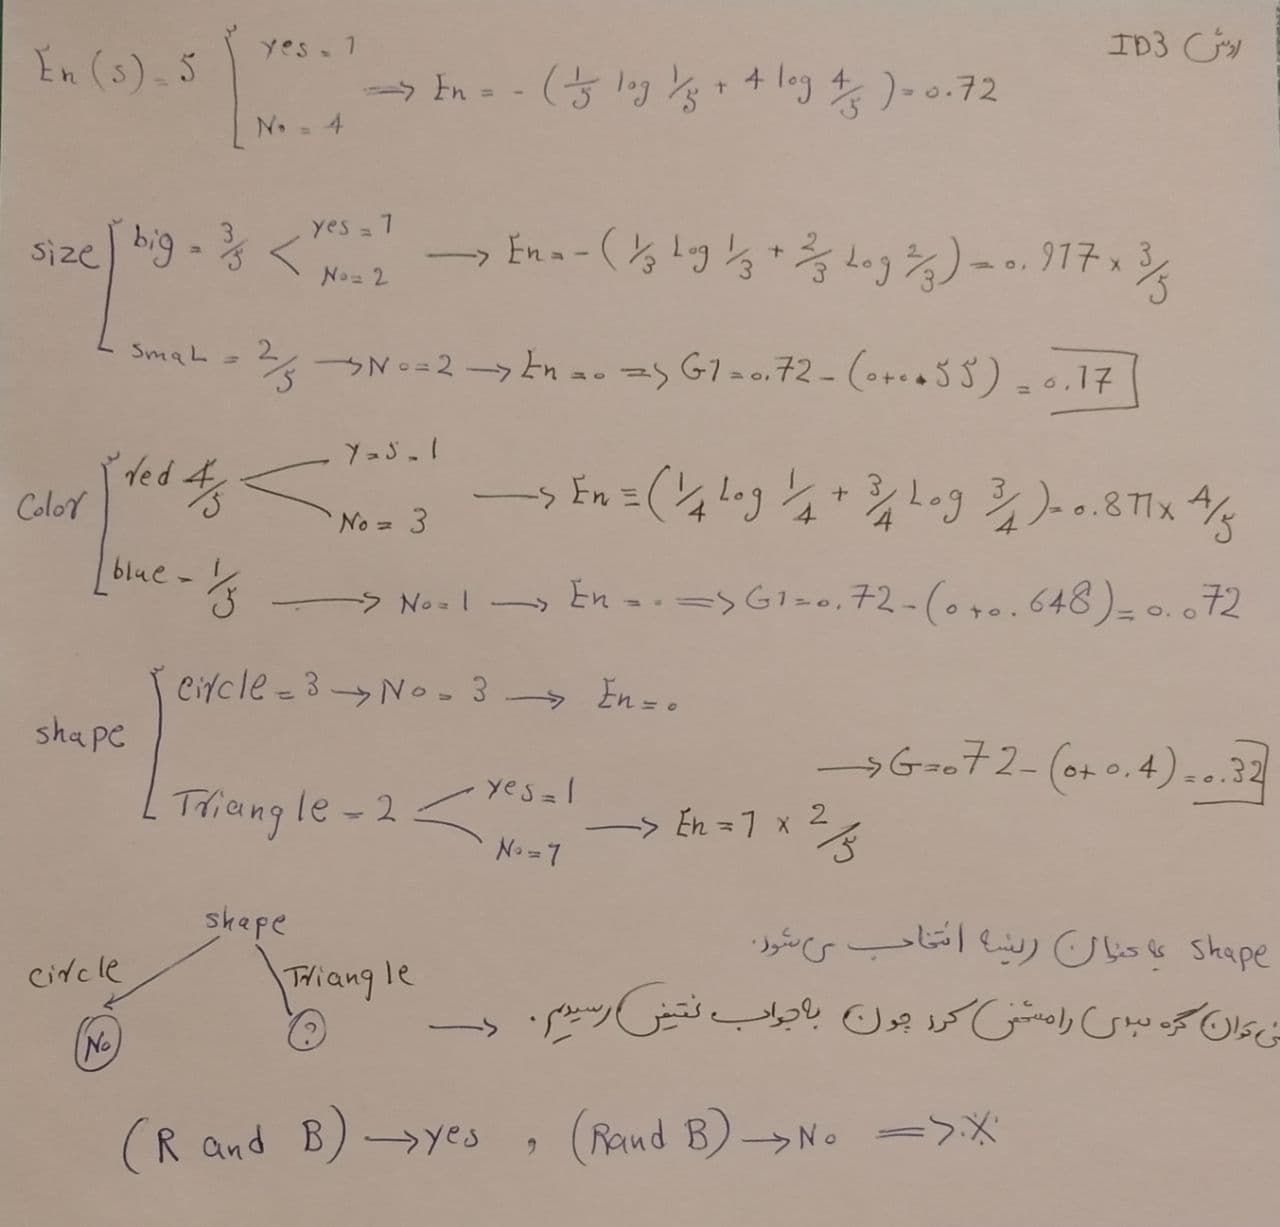 روش ID3
En(s) = 5 { yes = 1 ⇒ En = - (1/5 log 1/5 + 4 log 4/5) = 0.72
No = 4
size { big = 3/5 < yes = 1 → En = - (1/3 Log 1/3 + 2/3 Log 2/3) = 0.917 × 3/5
No = 2
smal = 2/5 → No = 2 → En = 0 ⇒ G1 = 0.72 - (0+0.55) = 0.17
Color { red 4/5 < No = 3 → En = (1/4 Log 1/4 + 3/4 Log 3/4) = 0.811 × 4/5
blue = 1/5 → No = 1 → En = 0 ⇒ G1 = 0.72 - (0+0.648) = 0.072
shape { circle = 3 → No = 3 → En = 0
Triangle = 2 < yes = 1 → En = 1 × 2/5 → G = 0.72 - (0+0.4) = 0.32
No = 1
shape
circle Triangle
No ?
shape به عنوان ریشه انتخاب می شود.
→ نمی توان گره بعدی را مشخص کرد چون به جواب نقیض رسیدیم.
(R and B) → yes , (R and B) → No ⇒ ※